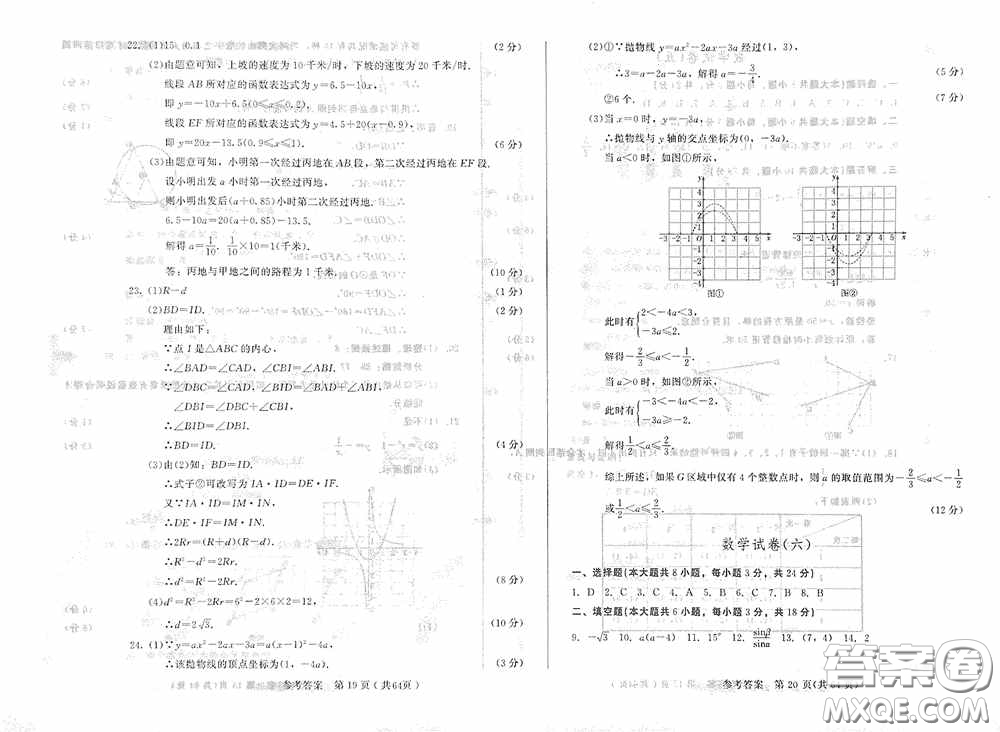 22. (1)15 0.1 (2分)
(2)由题意可知，上坡的速度为10千米/时，下坡的速度为20千米/时.
线段AB所对应的函数表达式为y=6.5-10x，
即y=-10x+6.5(0≤x≤0.2)，
线段EF所对应的函数表达式为y=4.5+20(x-0.9)，
即y=20x-13.5(0.9≤x≤1). (6分)
(3)由题意可知，小明第一次经过丙地在AB段，第二次经过丙地在EF段.
设小明出发a小时第一次经过丙地，
则小明出发后(a+0.85)小时第二次经过丙地.
6.5-10a=20(a+0.85)-13.5.
解得a=1/10. 1/10×10=1(千米).
答：丙地与甲地之间的路程为1千米. (10分)
23. (1)R-d (1分)
(2)BD=ID. (2分)
理由如下：
∵点I是△ABC的内心，
∴∠BAD=∠CAD，∠CBI=∠ABI.
∵∠DBC=∠CAD，∠BID=∠BAD+∠ABI，
∠DBI=∠DBC+∠CBI，
∴∠BID=∠DBI.
∴BD=ID. (4分)
(3)由(2)知：BD=ID.
∴式子②可改写为IA·ID=DE·IF.
又∵IA·ID=IM·IN，
∴DE·IF=IM·IN.
∴2Rr=(R+d)(R-d).
∴R²-d²=2Rr.
∴d²=R²-2Rr. (8分)
(4)d²=R²-2Rr=6²-2×6×2=12，
∴d=2√3. (10分)
24. (1)∵y=ax²-2ax-3a=a(x-1)²-4a，
∴该抛物线的顶点坐标为(1，-4a). (3分)
参考答案 第19页(共64页)
(2)①∵抛物线y=ax²-2ax-3a经过(1，3)，
∴3=a-2a-3a，解得a=-3/4. (5分)
②6个. (7分)
(3)当x=0时，y=-3a，
∴抛物线与y轴的交点坐标为(0，-3a).
当a<0时，如图①所示，
图① 图②
此时有{2<-4a<3，
-3a≤2.
解得-2/3≤a<-1/2.
当a>0时，如图②所示，
此时有{-3<-4a<-2，
-3a≥-2.
解得1/2<a≤2/3.
综上所述，如果G区域中仅有4个整数点时，则a的取值范围为-2/3≤a<-1/2
或1/2<a≤2/3. (12分)
数学试卷(六)
一、选择题(本大题共8小题，每小题3分，共24分)
1. D 2. C 3. C 4. A 5. B 6. C 7. C 8. A
二、填空题(本大题共6小题，每小题3分，共18分)
9. -√3 10. a(a-4) 11. 15° 12. sinβ/sinα 13. (7，4) 14. 2
参考答案 第20页(共64页)
答案圈
MXQE.COM